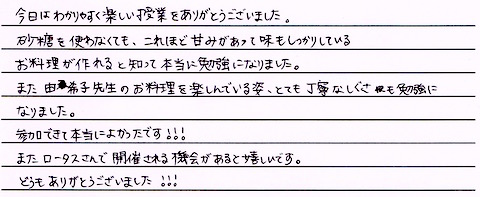 今日はわかりやすく楽しい授業をありがとうございました。
砂糖を使わなくても、これほど甘みがあって味もしっかりしている
お料理が作れると知って本当に勉強になりました。
また由希子先生のお料理を楽しんでいる姿、とても丁寧なしぐさも勉強に
なりました。
参加できて本当によかったです!!!
またロータスさんで開催される機会があると嬉しいです。
どうもありがとうございました!!!